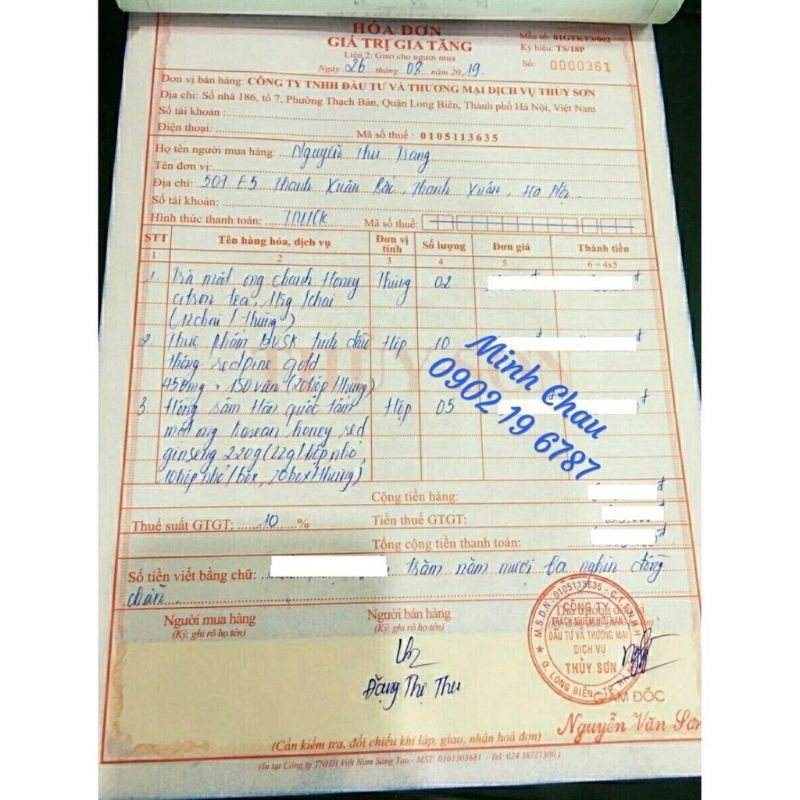 HÓA ĐƠN
GIÁ TRỊ GIA TĂNG
Liên 2: Giao cho người mua
Ngày 26 tháng 08 năm 2019
Mẫu số: 01GTKT3/002
Ký hiệu: TS/18P
Số: 0000361
Đơn vị bán hàng: CÔNG TY TNHH ĐẦU TƯ VÀ THƯƠNG MẠI DỊCH VỤ THỦY SƠN
Địa chỉ: Số nhà 186, tổ 7, Phường Thạch Bàn, Quận Long Biên, Thành phố Hà Nội, Việt Nam
Số tài khoản:
Điện thoại: Mã số thuế: 0105113635
Họ tên người mua hàng: Nguyễn Thu Trang
Tên đơn vị:
Địa chỉ: 509 E5 Thanh Xuân Bắc, Thanh Xuân, Hà Nội
Số tài khoản:
Hình thức thanh toán: TM/CK Mã số thuế:
STT Tên hàng hóa, dịch vụ Đơn vị tính Số lượng Đơn giá Thành tiền
1 2 3 4 5 6 = 4x5
1. Trà mật ong chanh Honey Thùng 02
citron tea, 1kg/chai
(12chai/thùng)
2. Thực phẩm BVSK tinh dầu Hộp 10
thông redpine gold
450mg x 150 viên (20hộp/thùng)
3. Hồng sâm Hàn quốc tẩm Hộp 05
mật ong korean honey red
ginseng 220g (22g/hộp nhỏ,
10hộp nhỏ/box, 20box/thùng)
THUY SƠN
Minh Chau
0902 19 6787
Cộng tiền hàng:
Thuế suất GTGT: 10 % Tiền thuế GTGT:
Tổng cộng tiền thanh toán:
Số tiền viết bằng chữ: trăm năm mươi ba nghìn đồng
chẵn
Người mua hàng Người bán hàng
(Ký, ghi rõ họ tên) (Ký, ghi rõ họ tên)
Đặng Thị Thu
M.S.D.N: 0105113635 - C.T.T.N.H.H
CÔNG TY
TRÁCH NHIỆM HỮU HẠN
ĐẦU TƯ VÀ THƯƠNG MẠI
DỊCH VỤ
THỦY SƠN
Q. LONG BIÊN - TP. HÀ NỘI
GIÁM ĐỐC
Nguyễn Văn Sơn
(Cần kiểm tra, đối chiếu khi lập, giao, nhận hoá đơn)
(In tại Công ty TNHH Việt Nam Sáng Tạo - MST: 0101303681 - Tel: 024 38727300)